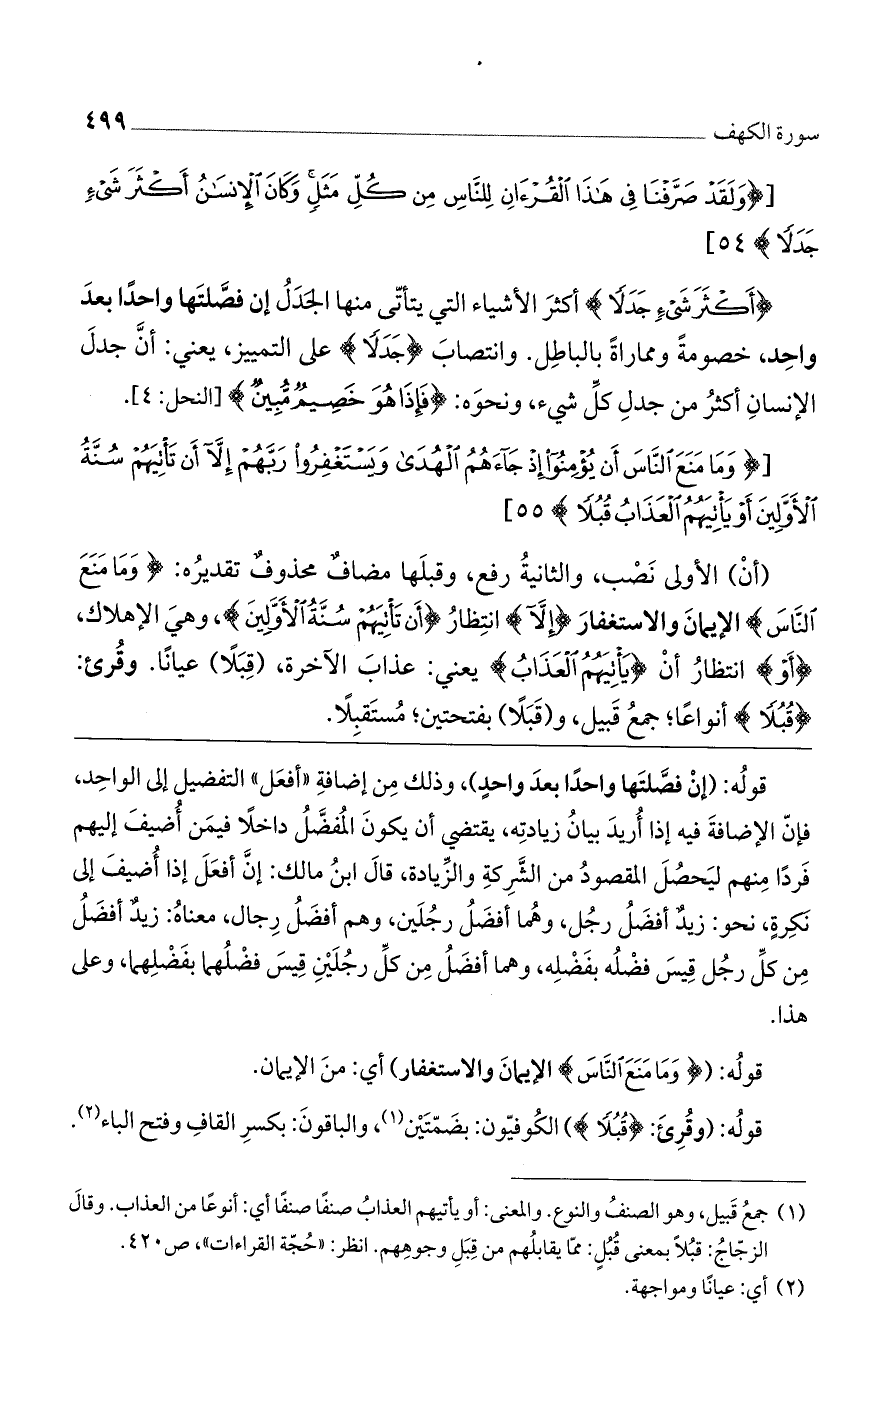 سورة الكهف ٤٩٩
[﴿وَلَقَدْ صَرَّفْنَا فِى هَٰذَا ٱلْقُرْءَانِ لِلنَّاسِ مِن كُلِّ مَثَلٍ ۚ وَكَانَ ٱلْإِنسَٰنُ أَكْثَرَ شَىْءٍ
جَدَلًا ﴾ ٥٤]
﴿أَكْثَرَ شَىْءٍ جَدَلًا ﴾ أكثرَ الأشياء التي يتأتّى منها الجَدَلُ إن فصَّلتَها واحدًا بعدَ
واحِد، خصومةً ومماراةً بالباطِل. وانتصابَ ﴿جَدَلًا ﴾ على التمييز، يعني: أنَّ جدلَ
الإنسانِ أكثرُ من جدلِ كلِّ شيء، ونحوَه: ﴿فَإِذَا هُوَ خَصِيمٌ مُّبِينٌ ﴾ [النحل: ٤].
[﴿ وَمَا مَنَعَ ٱلنَّاسَ أَن يُؤْمِنُوٓا۟ إِذْ جَآءَهُمُ ٱلْهُدَىٰ وَيَسْتَغْفِرُوا۟ رَبَّهُمْ إِلَّآ أَن تَأْتِيَهُمْ سُنَّةُ
ٱلْأَوَّلِينَ أَوْ يَأْتِيَهُمُ ٱلْعَذَابُ قُبُلًا ﴾ ٥٥]
(أنْ) الأولى نَصْب، والثانيةُ رفع، وقبلَها مضافٌ محذوفٌ تقديرُه: ﴿ وَمَا مَنَعَ
ٱلنَّاسَ ﴾ الإيمانَ والاستغفارَ ﴿إِلَّآ ﴾ انتِظارُ ﴿أَن تَأْتِيَهُمْ سُنَّةُ ٱلْأَوَّلِينَ ﴾، وهيَ الإهلاك،
﴿أَوْ ﴾ انتظارُ أنْ ﴿يَأْتِيَهُمُ ٱلْعَذَابُ ﴾ يعني: عذابَ الآخرة، (قِبَلًا) عيانًا. وقُرئ:
﴿قُبُلًا ﴾ أنواعًا؛ جمعُ قَبيل، و(قَبَلًا) بفتحتين؛ مُستَقبِلًا.
قولُه: (إنْ فصَّلتَها واحدًا بعدَ واحدٍ)، وذلك مِن إضافةِ «أفعَل» التفضيل إلى الواحِد،
فإنّ الإضافةَ فيه إذا أُريدَ بيانُ زيادتِه، يقتضي أن يكونَ المُفضَّلُ داخلًا فيمَن أُضيفَ إليهم
فَردًا مِنهم ليَحصُلَ المقصودُ من الشَّركةِ والزِّيادة، قالَ ابنُ مالك: إنَّ أفعَلَ إذا أُضيفَ إلى
نَكِرةٍ، نحو: زيدٌ أفضَلُ رجُل، وهُما أفضَلُ رجُلَين، وهم أفضَلُ رِجال، معناهُ: زيدٌ أفضَلُ
مِن كلِّ رجُل قِيسَ فضْلُه بفَضْلِه، وهما أفضَلُ مِن كلِّ رجُلَيْنِ قِيسَ فضْلُهما بفَضْلِهما، وعلى
هذا.
قولُه: (﴿ وَمَا مَنَعَ ٱلنَّاسَ ﴾ الإيمانَ والاستغفار) أي: منَ الإيمان.
قولُه: (وقُرِئَ: ﴿قُبُلًا ﴾) الكُوفيّون: بضَمّتَيْن(١)، والباقونَ: بكسرِ القافِ وفتح الباء(٢).
(١) جمعُ قَبيل، وهو الصنفُ والنوع. والمعنى: أو يأتيهم العذابُ صنفًا صنفًا أي: أنوعًا من العذاب. وقالَ
الزجّاجُ: قبُلاً بمعنى قُبُلٍ: ممّا يقابلُهم من قِبَلِ وجوهِهم. انظر: «حُجّة القراءات»، ص٤٢٠.
(٢) أي: عيانًا ومواجهة.